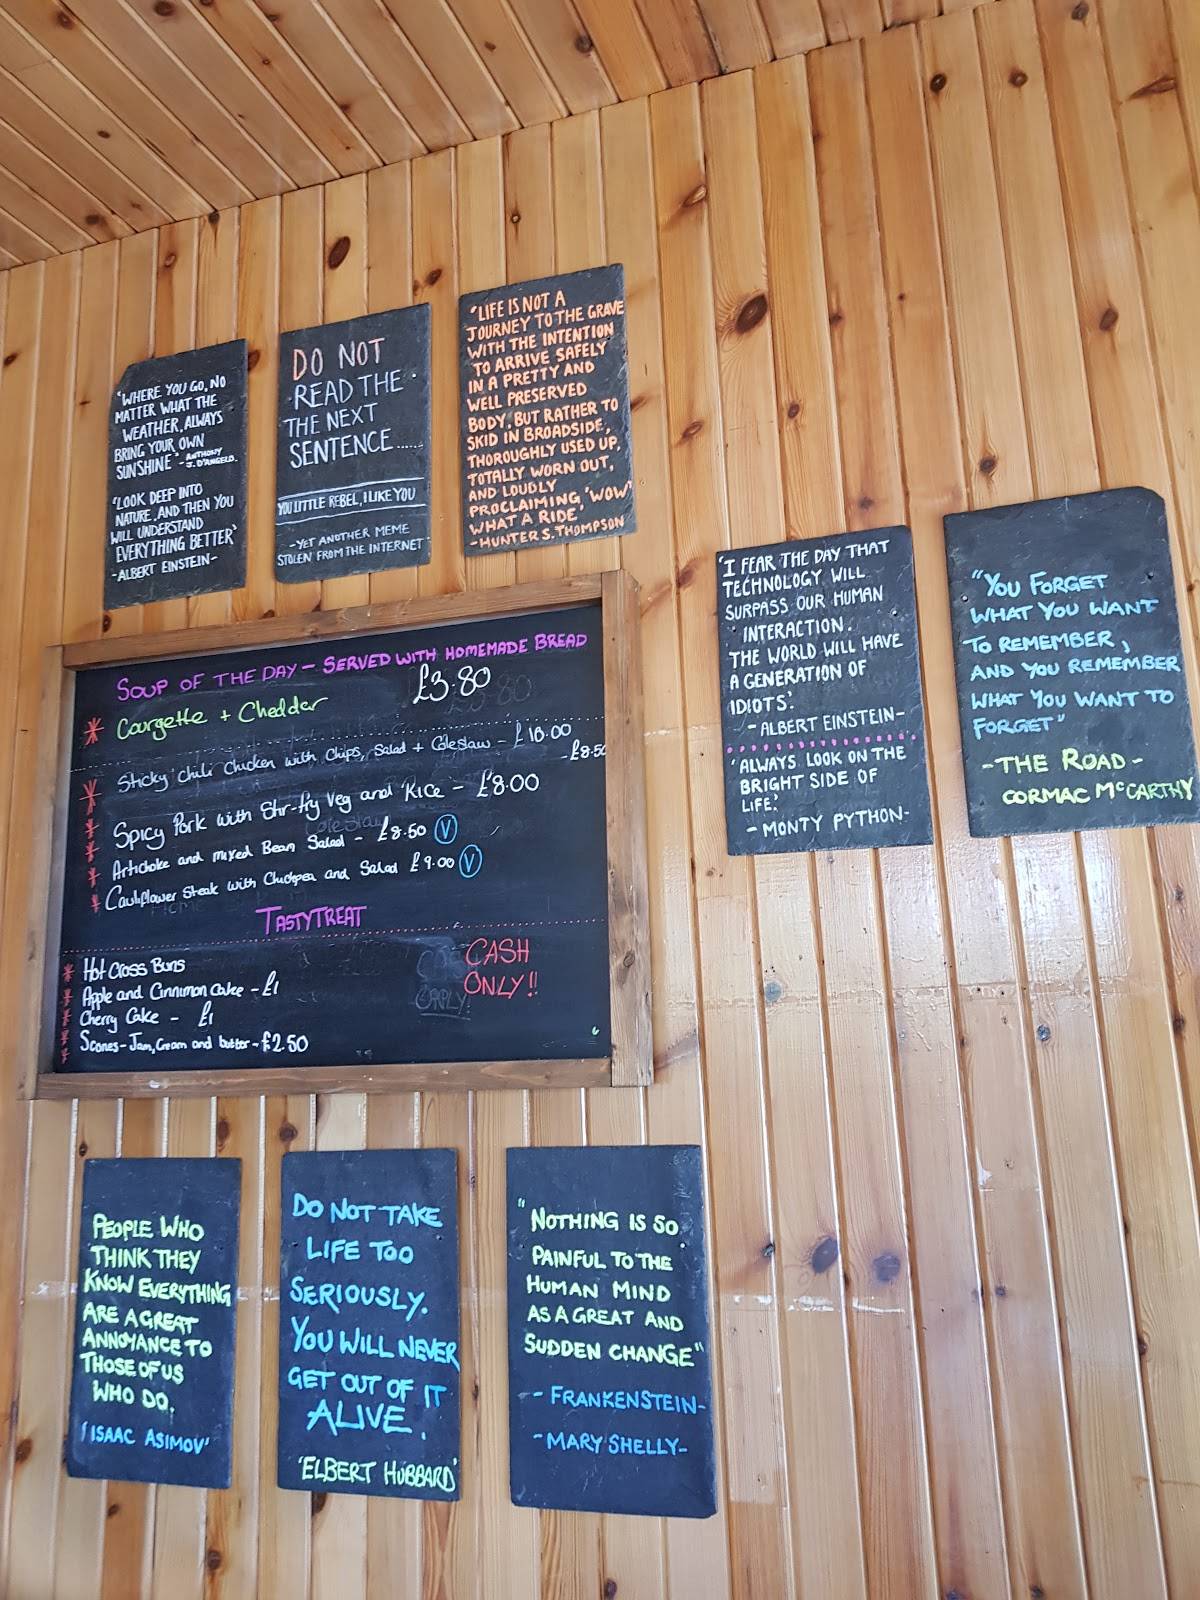 "WHERE YOU GO, NO
MATTER WHAT THE
WEATHER, ALWAYS
BRING YOUR OWN
SUNSHINE" - ANTHONY
J. D'ANGELO.
"LOOK DEEP INTO
NATURE, AND THEN YOU
WILL UNDERSTAND
EVERYTHING BETTER"
-ALBERT EINSTEIN-
DO NOT
READ THE
THE NEXT
SENTENCE......
YOU LITTLE REBEL, I LIKE YOU
-YET ANOTHER MEME
STOLEN FROM THE INTERNET-
"LIFE IS NOT A
JOURNEY TO THE GRAVE
WITH THE INTENTION
TO ARRIVE SAFELY
IN A PRETTY AND
WELL PRESERVED
BODY, BUT RATHER TO
SKID IN BROADSIDE,
THOROUGHLY USED UP,
TOTALLY WORN OUT,
AND LOUDLY
PROCLAIMING, 'WOW'
WHAT A RIDE,
-HUNTER S. THOMPSON
'I FEAR THE DAY THAT
TECHNOLOGY WILL
SURPASS OUR HUMAN
INTERACTION.
THE WORLD WILL HAVE
A GENERATION OF
IDIOTS'.
-ALBERT EINSTEIN-
'ALWAYS LOOK ON THE
BRIGHT SIDE OF
LIFE.'
-MONTY PYTHON-
"YOU FORGET
WHAT YOU WANT
TO REMEMBER,
AND YOU REMEMBER
WHAT YOU WANT TO
FORGET"
-THE ROAD-
CORMAC McCARTHY
SOUP OF THE DAY - SERVED WITH HOMEMADE BREAD
Courgette + Cheddar £3.80
Sticky Chili Chicken with Chips, Salad + Coleslaw - £10.00
£8.50
Spicy Pork with Stir-fry Veg and Rice - £8.00
Artichoke and mixed Bean Salad - £8.50 V
Cauliflower Steak with Chickpea and Salad £9.00 V
TASTY TREAT
Hot Cross Buns
Apple and Cinnimon cake - £1
Cherry Cake - £1
Scones - Jam, Cream and butter - £2.50
CASH
ONLY!!
PEOPLE WHO
THINK THEY
KNOW EVERYTHING
ARE A GREAT
ANNOYANCE TO
THOSE OF US
WHO DO.
'ISAAC ASIMOV'
DO NOT TAKE
LIFE TOO
SERIOUSLY.
YOU WILL NEVER
GET OUT OF IT
ALIVE.
'ELBERT HUBBARD'
"NOTHING IS SO
PAINFUL TO THE
HUMAN MIND
AS A GREAT AND
SUDDEN CHANGE"
-FRANKENSTEIN-
-MARY SHELLY-